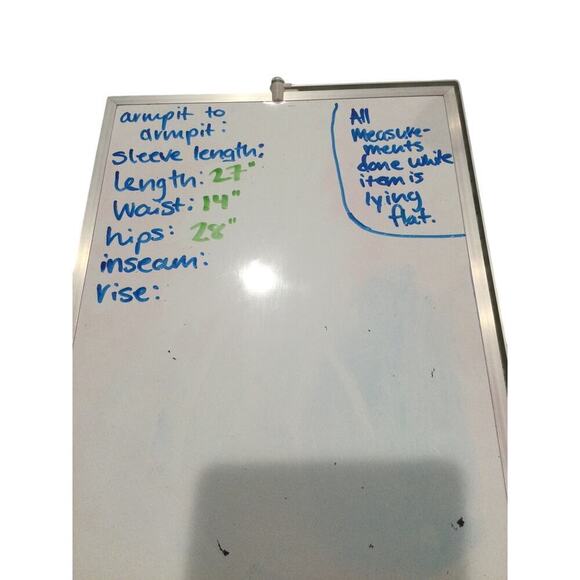 armpit to
armpit:
sleeve length:
length: 27"
Waist: 14"
hips: 28"
inseam:
rise:
All
Measure-
ments
done while
item is
lying
flat.